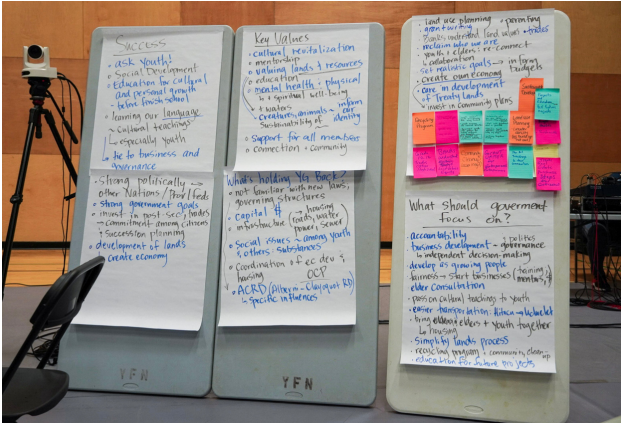 Success
• ask youth!
○ Social Development
○ Education for cultural
and personal growth →
before finish school
• learning our language
↳ cultural teachings
↳ especially youth
↳ tie to business and
governance
• Strong politically →
other Nations / Prov / feds
• strong government goals
• invest in post-sec / trades
→ commitment among citizens
• succession planning
• development of lands
↳ create economy
YFN
Key Values
• cultural revitalization
○ mentorship
• valuing lands + resources
○ education
○ mental health • physical
+ spiritual well-being
+ waters
creatures, animals → inform
sustainability of our
identity
• support for all member
○ connection • community
What's holding YG Back?
• not familiar with new laws,
governing structures
• capital $
• infrastructure (roads, water
→ housing
power, sewer
• Social issues → among youth
+ others • substances
• coordination of ec dev +
housing OCP
• ACRD (Alberni-Clayoquot RD)
↳ specific influences
YFN
land use planning • permitting
• grant writing
understand land values • trades
• reclaim who we are
• youth + elders • re-connect
↳ collaboration
• set realistic goals → in form
budgets
• create own economy
• care in development
of Treaty lands
invest in community plans
What should government
focus on?
• accountability
• business development • politics
governance
↳ independent decision-making
• develop as growing people
• fairness → start businesses (training,
mentors, $)
• elder consultation
• pass on cultural teachings to youth
• easier transportation • Hitacu → Ucluelet
• bring elders + youth together
↳ housing
• simplify lands process
• recycling program • community clean-up
• education for future projects